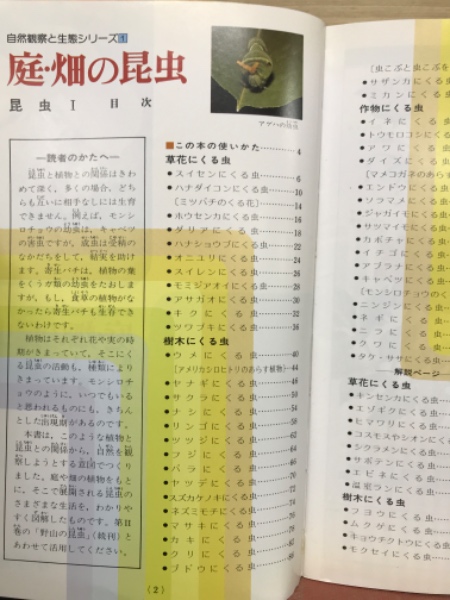 自然観察と生態シリーズ1
庭・畑の昆虫
昆虫I 目次
アゲハの幼虫
―読者のかたへ―
昆虫と植物との関係はきわ
めて深く、多くの場合、どち
らも互いに相手なしには生育
できません。例えば、モンシ
ロチョウの幼虫は、キャベツ
の害虫ですが、成虫は受粉の
なかだちをして、結実を助け
ます。寄生バチは、植物の葉
をくうガ類の幼虫をたおしま
すが、もし、食草の植物がな
かったら寄生バチも生存でき
ないわけです。
植物はそれぞれ花や実の時
期がきまっていて、そこにく
る昆虫の活動も、種類により
きまっています。モンシロチ
ョウのように、いつでもいる
と思われるものにも、きちん
とした出現期があるのです。
本書は、このような植物と
昆虫との関係から、自然を観
察しようとする意図でつくり
ました。庭や畑の植物をもと
に、そこで展開される昆虫の
さまざまな生活を、わかりや
すく図解したものです。第II
巻の「野山の昆虫」(続刊)と
あわせて活用してください。
■この本の使いかた 4
草花にくる虫
●スイセンにくる虫 6
●ハナダイコンにくる虫 10
[ミツバチのくる花] 14
●ホウセンカにくる虫 16
●ダリアにくる虫 18
●ハナショウブにくる虫 22
●オニユリにくる虫 24
●スイレンにくる虫 26
●モミジアオイにくる虫 28
●アサガオにくる虫 30
●キクにくる虫 32
●ツワブキにくる虫
樹木にくる虫
●ウメにくる虫 40
[アメリカシロヒトリのあらす植物] 44
●ヤナギにくる虫
●サクラにくる虫
●ナシにくる虫
●リンゴにくる虫
●ツツジにくる虫
●フジにくる虫
●バラにくる虫
●ヤツデにくる虫
●スズカケノキにくる虫
●ネズミモチにくる虫
●マサキにくる虫
●カキにくる虫
●クリにくる虫
●ブドウにくる虫
(2)
[虫こぶと虫こぶを
●サザンカにくる
●ミカンにくる
作物にくる虫
●イネにくる
●トウモロコシにくる
●アワにくる
●ダイズにくる
[マメコガネのあらす
●エンドウにくる
●ソラマメにくる
●ジャガイモにくる
●サツマイモにくる
●カボチャにくる
●イチゴにくる
●アブラナにくる
●キャベツにくる
[モンシロチョウのく
●ニンジンにくる
●ネギにくる
●ニラにくる
●クワにくる
●タケ・ササにくる虫
―解説ページ―
草花にくる虫
●キンセンカにくる虫
●エゾギクにくる虫
●ヒマワリにくる虫
●コスモスやシオンにくる
●シクラメンにくる虫
●サボテンにくる虫
●エビネにくる虫
●温室ランにくる虫
樹木にくる虫
●フヨウにくる虫
●ムクゲにくる虫
●キョウチクトウにくる虫
●モクセイにくる虫